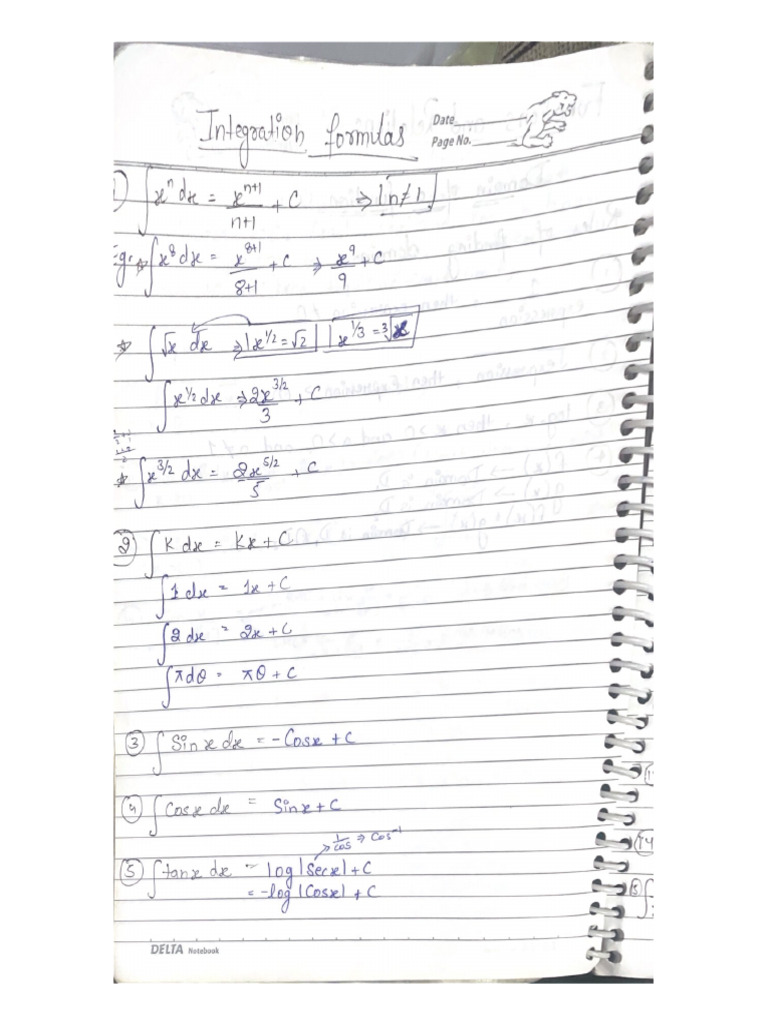 Integration formulas
Date
Page No.
1) ∫xⁿ dx = xⁿ⁺¹/n+1 + C ⇒ |n≠1|
Eg. * ∫x⁸ dx = x⁸⁺¹/8+1 + C ⇒ x⁹/9 + C
* ∫√x dx ⇒ |x^1/2 = √2| |x^1/3 = ³√x|
∫x^1/2 dx ⇒ 2x^3/2/3 + C
* ∫x^3/2 dx = 2x^5/2/5 + C
2) ∫K dx = Kx + C
∫1 dx = 1x + C
∫2 dx = 2x + C
∫π dθ = πθ + C
3) ∫Sinx dx = -Cosx + C
4) ∫Cosx dx = Sinx + C
1/cos ⇒ Cos⁻¹
5) ∫tanx dx = log|Secx| + C
= -log|Cosx| + C
DELTA Notebook